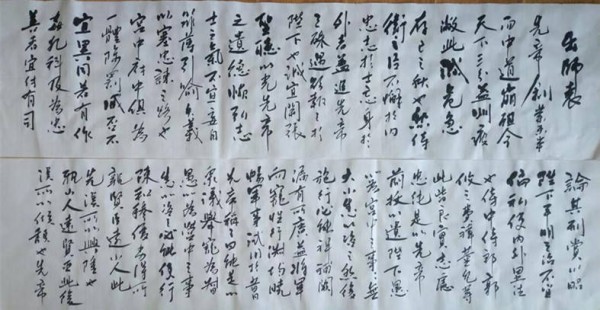 出师表
先帝創業未半
而中道崩殂今
天下三分益州疲
敝此誠危急
存亡之秋也然侍
衛之臣不懈於内
忠志之士忘身於
外者盖追先帝
之殊遇欲報之於
陛下也誠宜開張
聖聽以光先帝
之遺德恢弘志
士之氣不宜妄自
菲薄引喻失義
以塞忠諫之路也
宫中府中俱為
一體陟罰臧否不
宜異同若有作
奸犯科及為忠
善者宜付有司
論其刑賞以昭
陛下平明之治不宜
偏私使内外異法
也侍中侍郎郭
攸之費禕董允等
此皆良實志慮
忠純是以先帝
簡拔以遺陛下愚
以為宫中之事無
大小悉以咨之然後
施行必能裨補闕
漏有所廣益將軍
向寵性行淑均曉
暢軍事試用於昔
先帝稱之曰能是以
衆議舉寵為督
愚以為營中之事
悉以咨之必能使行
陣和穆優劣得所
親賢臣遠小人此
先漢所以興隆也
親小人遠賢臣此後
漢所以傾頹也先帝